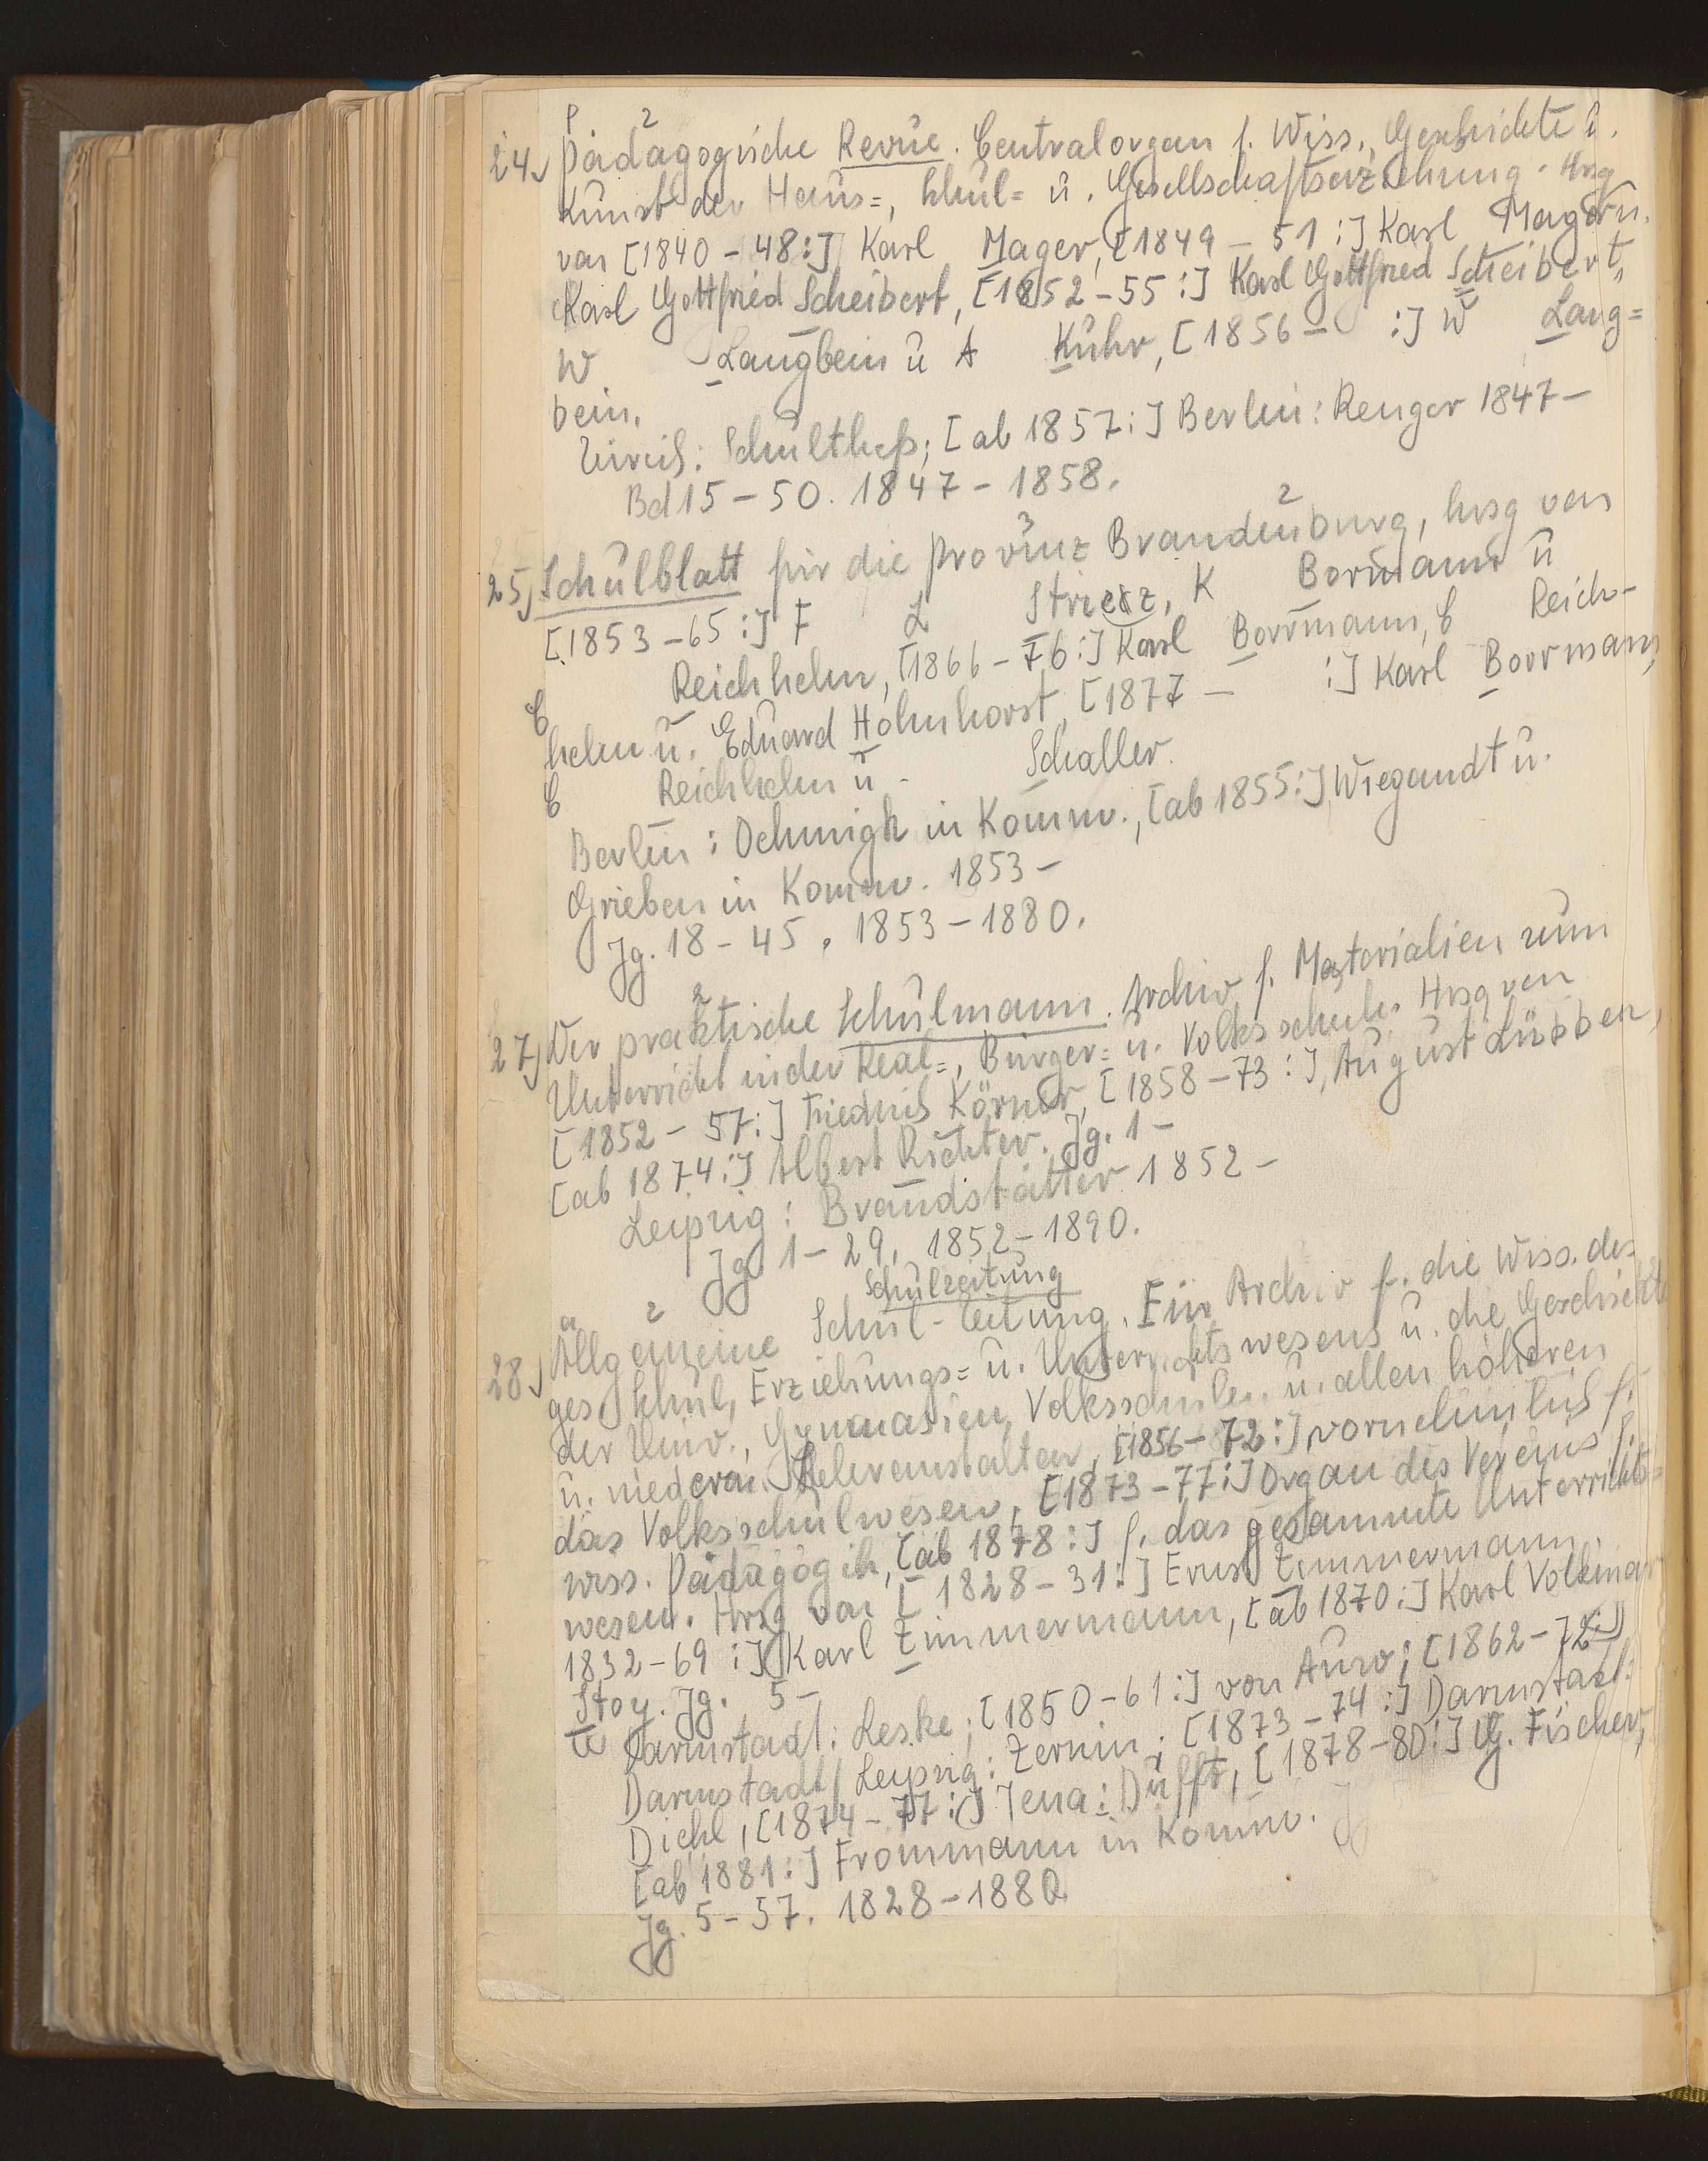 24) Pädagogische Revue. Centralorgan f. Wiss., Geschichte u.
Kunst der Haus=, Schul= u. Gesellschaftserziehung. Hrsg
von [1840-48:] Karl Mager, [1849-51:] Karl Mager u.
Karl Gottfried Scheibert, [1852-55:] Karl Gottfried Scheibert,
W Langbein u A Kuhr, [1856- :] W Lang=
bein.
Zürich: Schultheß; [ab 1857:] Berlin: Renger 1847-
Bd 15-50. 1847-1858.
25) Schulblatt für die Provinz Brandenburg, hrsg von
[1853-65:] F L Striez, K Bormann u
C Reichhelm, [1866-76:] Karl Borrmann, C Reich-
helm u. Eduard Hohnhorst, [1877- :] Karl Borrmann,
C Reichhelm u. Schaller.
Berlin: Oehmigk in Komm., [ab 1855:] Wiegandt u.
Grieben in Komm. 1853-
Jg. 18-45. 1853-1880.
27) Der praktische Schulmann. Archiv f. Materialien zum
Unterricht in der Real=, Bürger= u. Volksschule. Hrsg von
[1852-57:] Friedrich Körner, [1858-73:], August Lübben,
[ab 1874:] Albert Richter. Jg. 1-
Leipzig: Brandstätter 1852-
Jg 1-29, 1852-1890.
Schulzeitung
28) Allgemeine Schul-Zeitung. Ein Archiv f. die Wiss. des
ges. Schul, Erziehungs= u. Unterrichtswesens u. die Geschichte
der Univ., Gymnasien, Volksschulen u. allen höheren
u. niederen Lehranstalten, [1856-72:] vornehmlich f.
das Volksschulwesen, [1873-77:] Organ des Vereins f.
wiss. Pädagogik, [ab 1878:] f. das gesammte Unterrichts=
wesen. Hrsg von [1828-31:] Ernst Zimmermann,
1832-69:] Karl Zimmermann, [ab 1870:] Karl Volkmar
Stoy. Jg. 5-
Darmstadt: Leske; [1850-61:] von Auw; [1862-72:]
Darmstadt/Leipzig: Zernin; [1873-74:] Darmstadt:
Diehl, [1874-77:] Jena: Dufft, [1878-80:] G. Fischer,
[ab 1881:] Frommann in Komm.
Jg. 5-57. 1828-1880